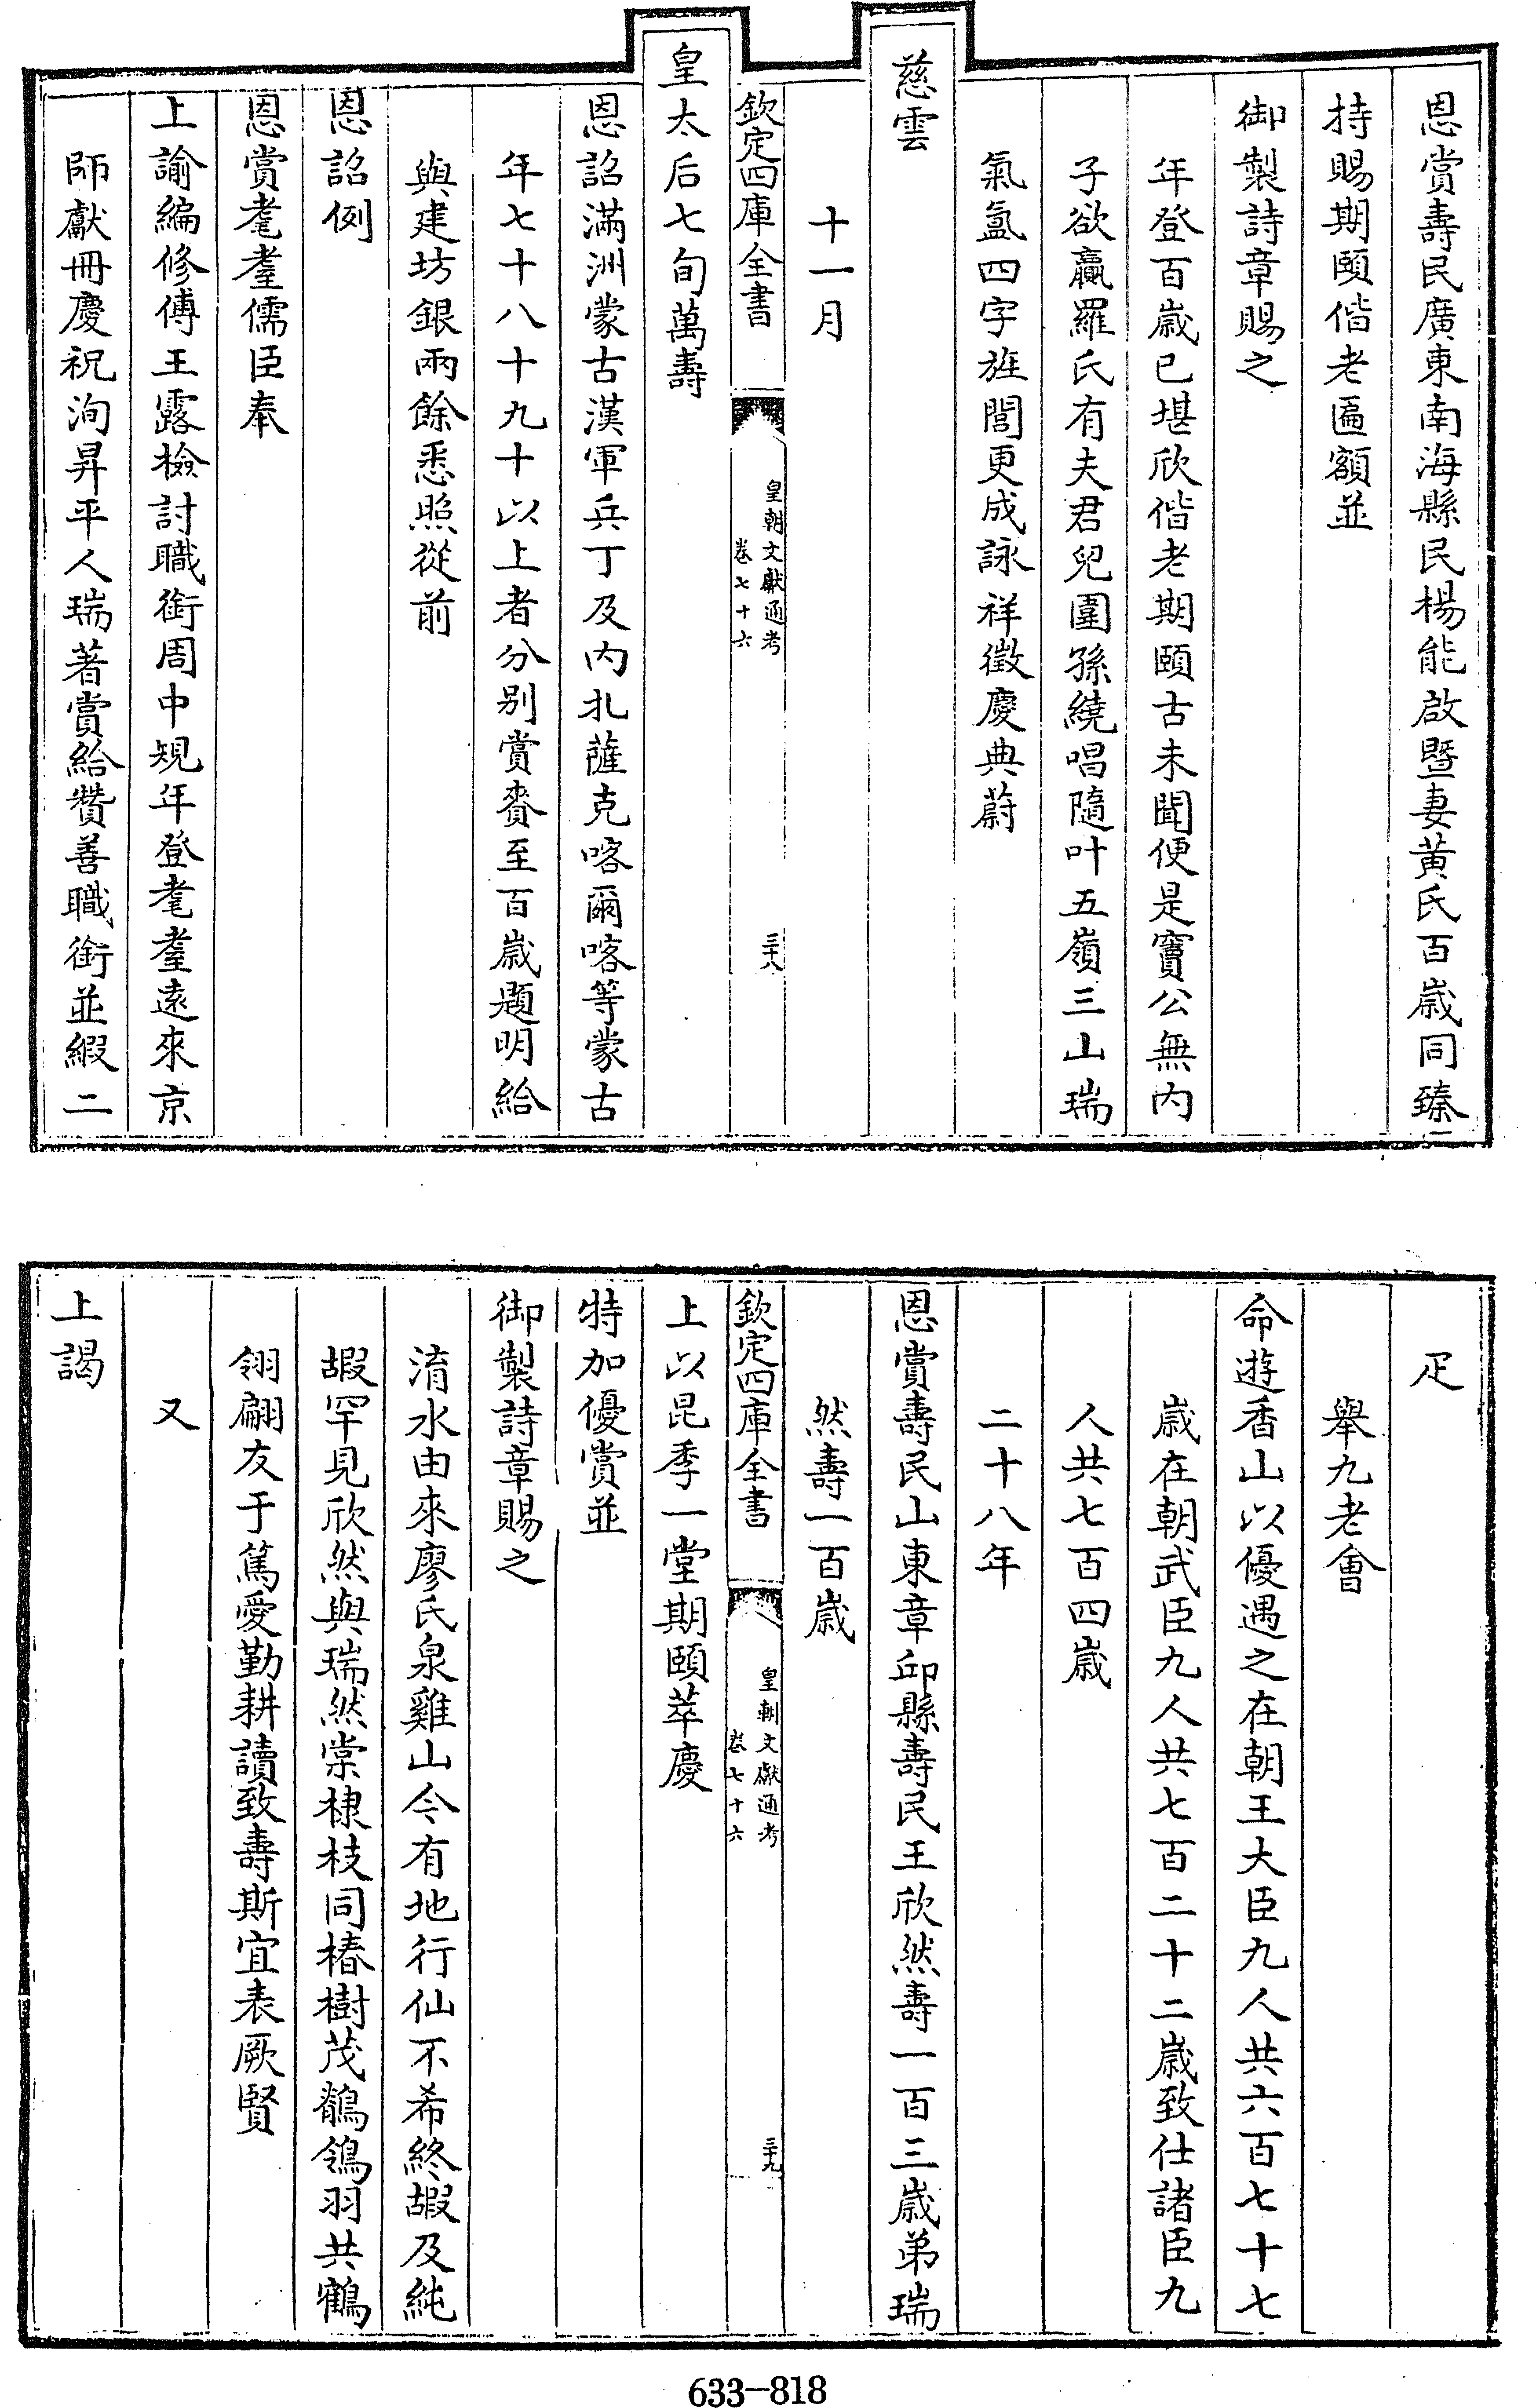 恩賞壽民廣東南海縣民楊能啟暨妻黃氏百歲同臻
持賜期頤偕老匾額並
御製詩章賜之
年登百歲已堪欣偕老期頤古未聞便是竇公無內
子欲贏羅氏有夫君兒圍孫繞唱隨叶五嶺三山瑞
氣氳四字旌閭更成詠祥徵慶典蔚
慈雲
十一月
欽定四庫全書
皇朝文獻通考
卷七十六
三十八
皇太后七旬萬壽
恩詔滿洲蒙古漢軍兵丁及內扎薩克喀爾喀等蒙古
年七十八十九十以上者分別賞賚至百歲題明給
與建坊銀兩餘悉照從前
恩詔例
恩賞耄耋儒臣奉
上諭編修傅王露檢討職銜周中規年登耄耋遠來京
師獻冊慶祝洵昇平人瑞著賞給贊善職銜並緞二
疋
舉九老會
命遊香山以優遇之在朝王大臣九人共六百七十七
歲在朝武臣九人共七百二十二歲致仕諸臣九
人共七百四歲
二十八年
恩賞壽民山東章邱縣壽民王欣然壽一百三歲弟瑞
然壽一百歲
欽定四庫全書
皇朝文獻通考
卷七十六
三十九
上以昆季一堂期頤萃慶
特加優賞並
御製詩章賜之
淯水由來廖氏泉雞山今有地行仙不希終嘏及純
嘏罕見欣然與瑞然棠棣枝同椿樹茂鶺鴒羽共鶴
翎翩友于篤愛勤耕讀致壽斯宜表厥賢
又
上謁
633-818